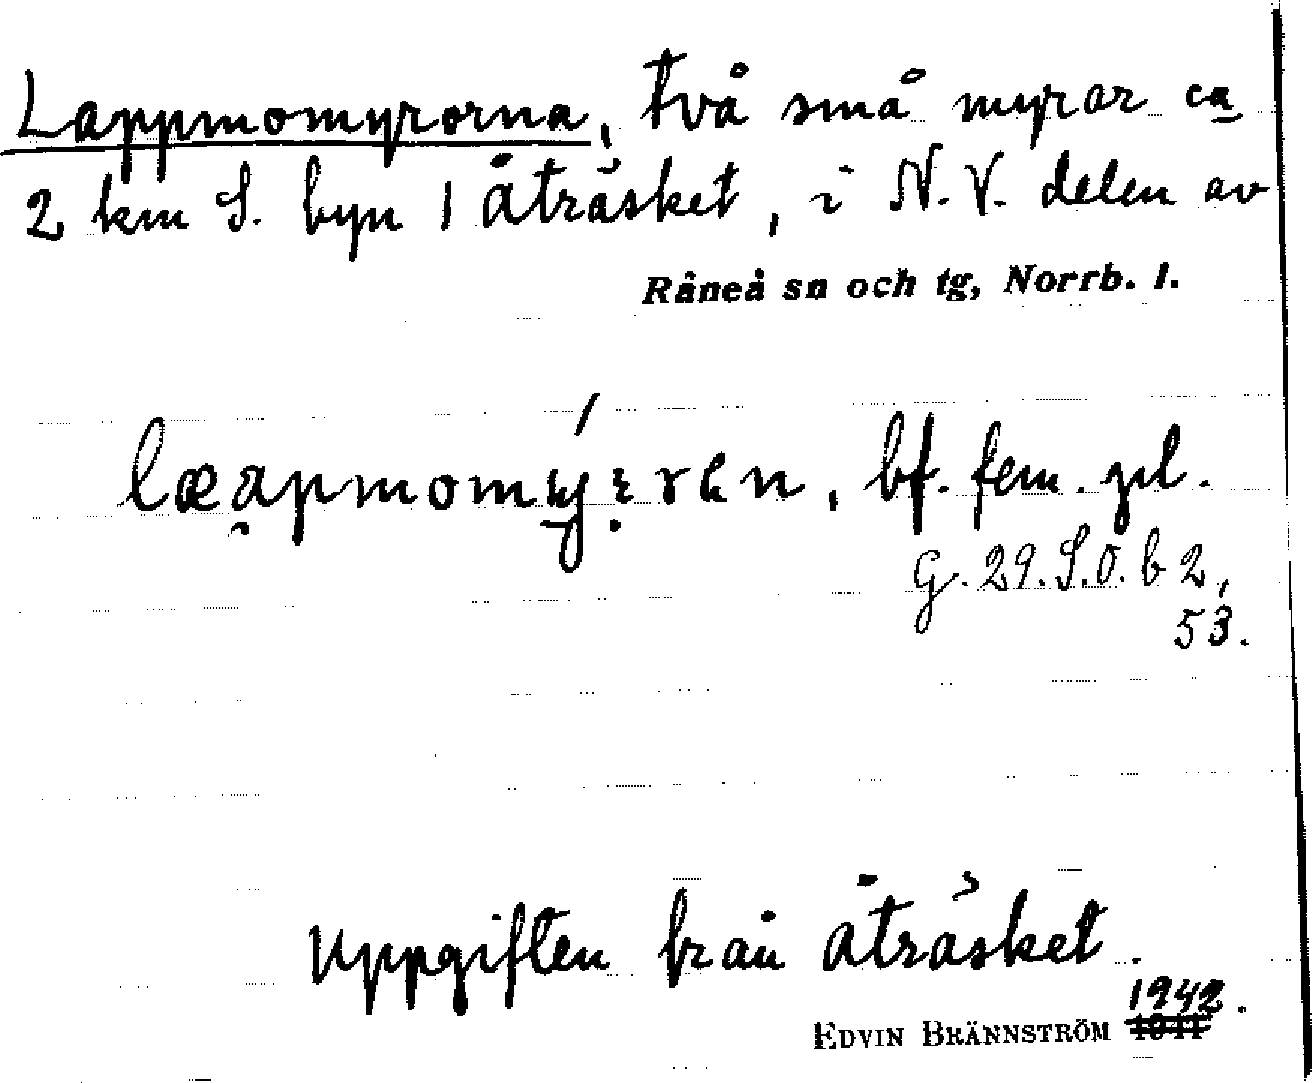 Lappmomyrorna, två små myrar ca
2 km S. byn 1 Åträsket, i N.V. delen av
Råneå sn och tg, Norrb. l.
bf. fem. pl.
G. 29. S.O. b 2,
53.
Uppgiften från Åträsket.
1942.
EDVIN BRÄNNSTRÖM 1941